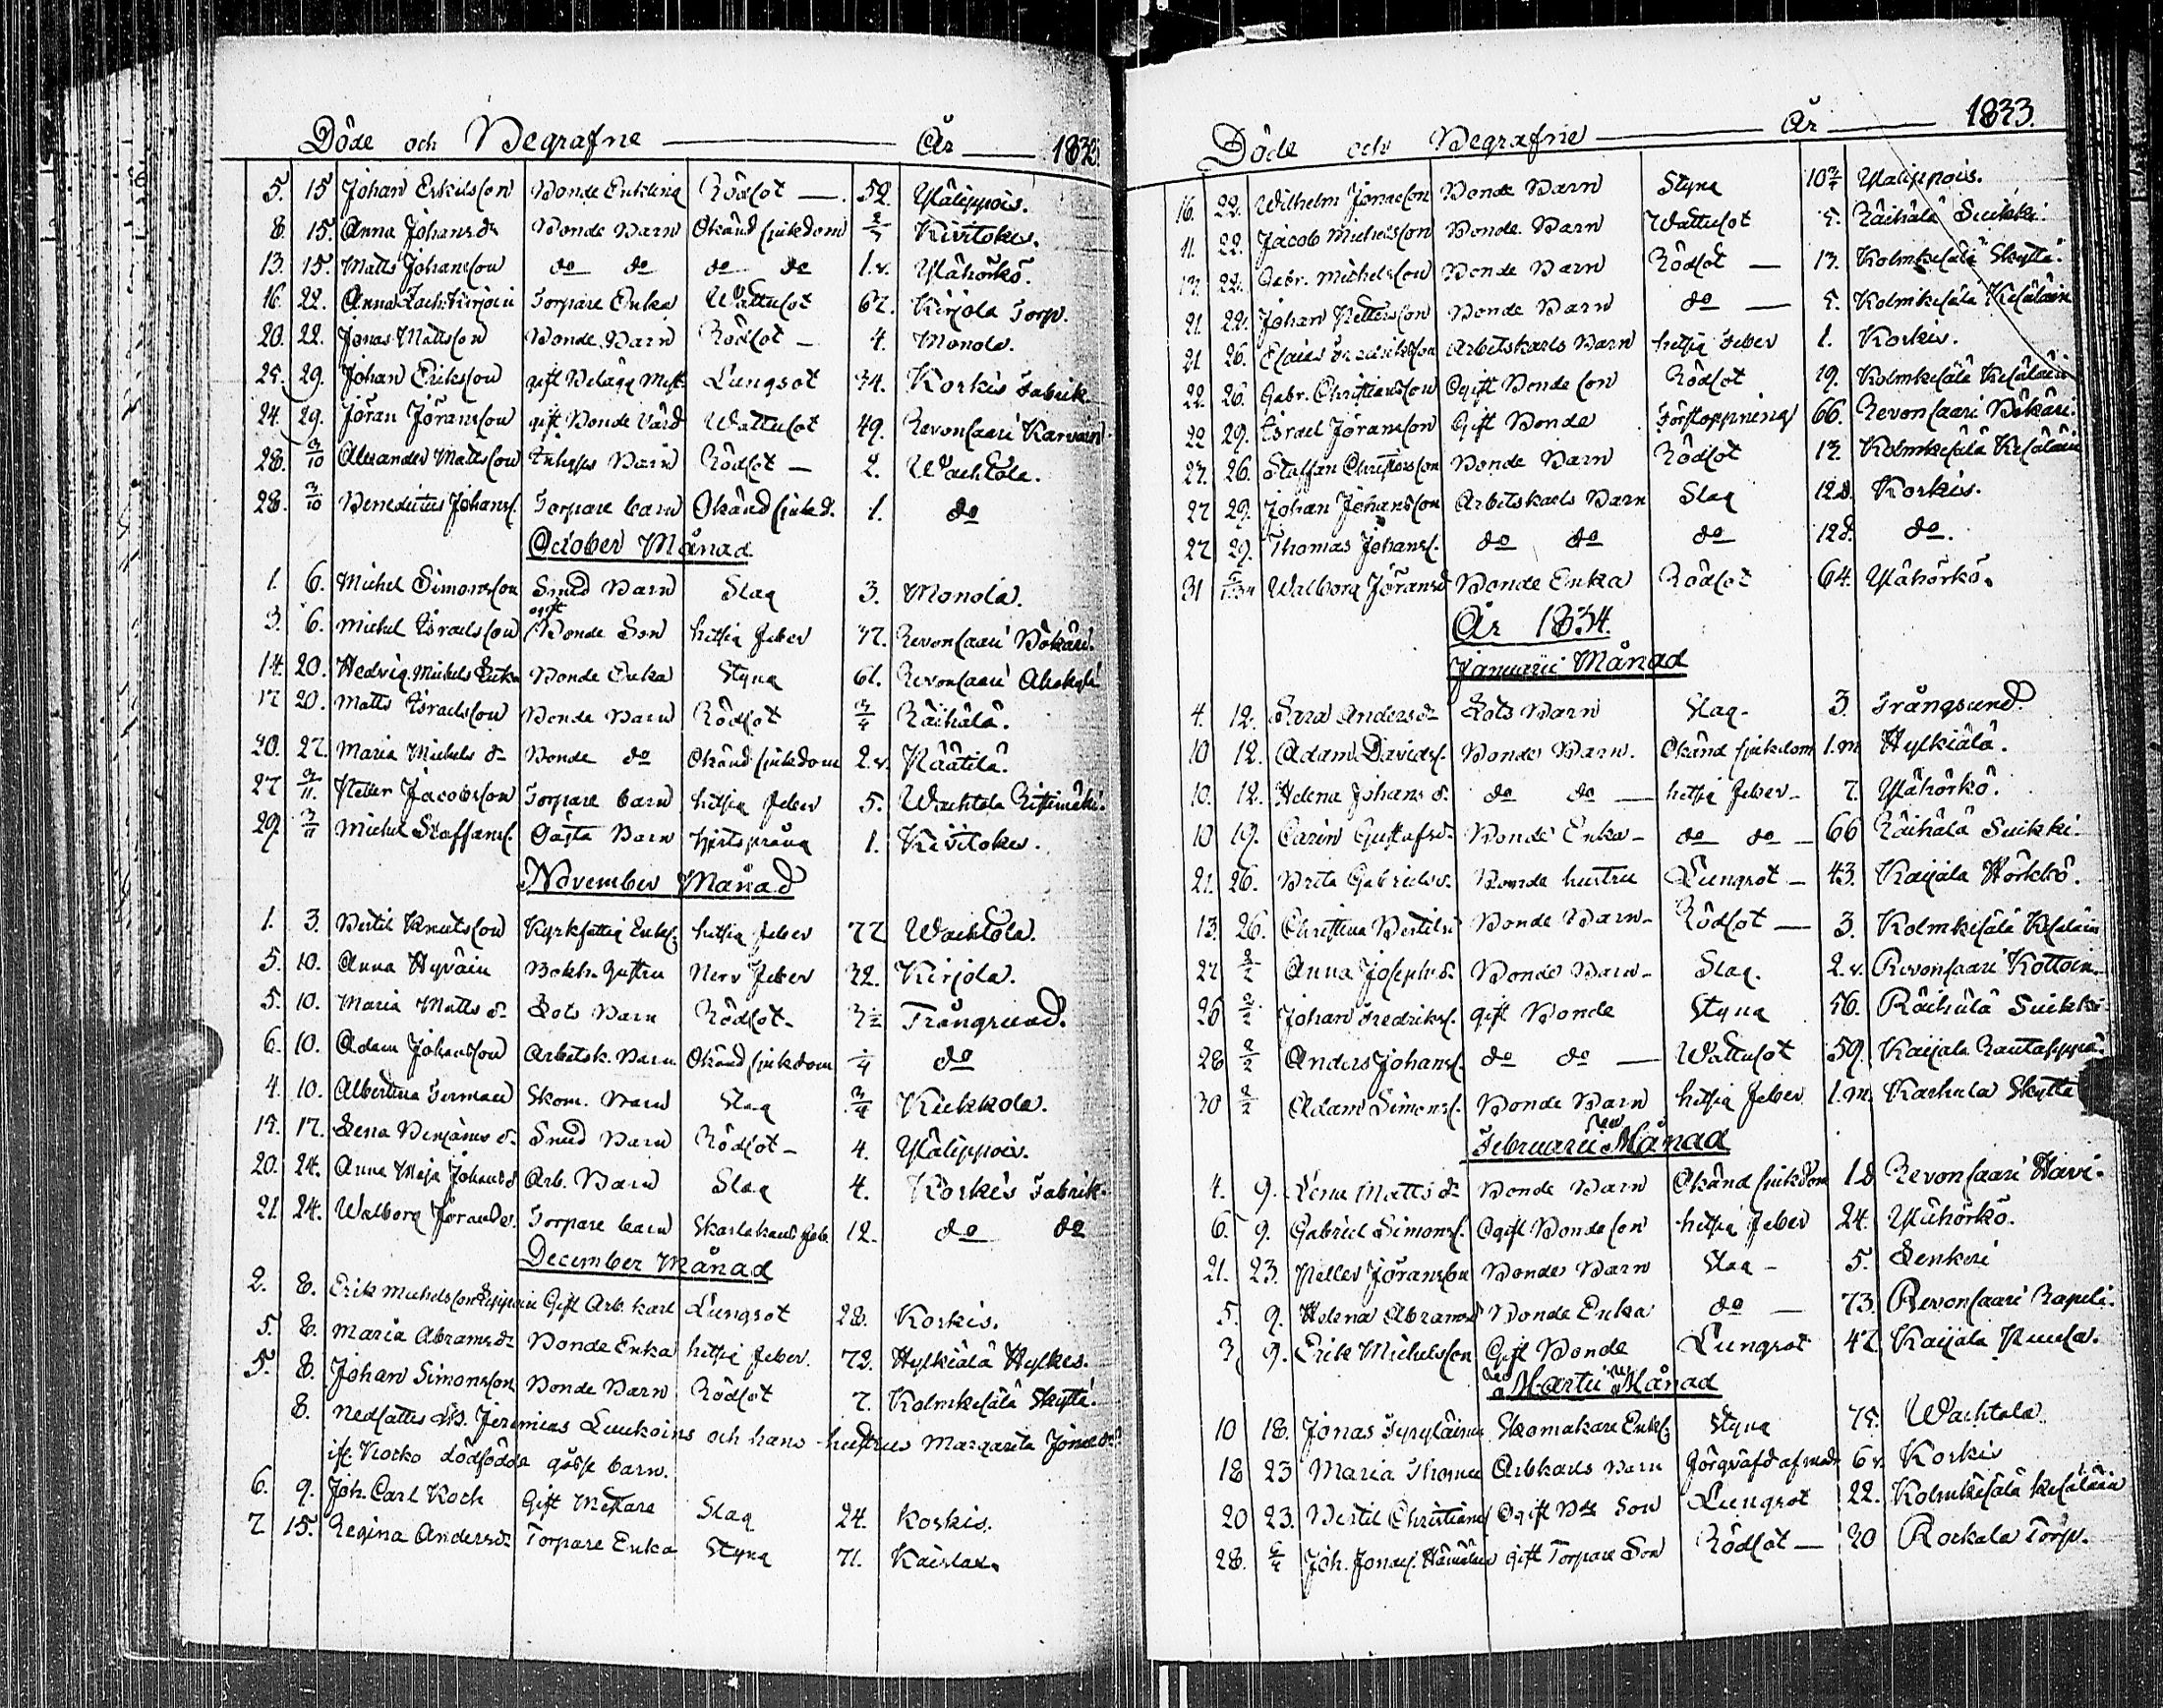 Döde och Begrafne År 1833.
5. 15 Johan Erkilsson Bonde Enkling Rödsot 52. Yläippois.
8. 15. Anna Johansdr Bonde Barn Okänd sjukdom 2/4 Kiurtokes.
13. 15. Matts Johansson do do do do 1.v. Ylähörkö.
16. 22. Anna Zach: Kirjoin Torpare Enka Wattusot 67. Kirjola Torp.
20. 22. Jonas Mattsson Bonde Barn Rödsot 4. Monola.
25. 29. Johan Eriksson gift Belägg Mest. Lungsot 34. Korkis Fabrik
24. 29. Jöran Jöransson gift Bonde Värd Wattusot 49. Revonsaari Karvain
28. 3/10 Alexander Mattsson Inhyses Barn Rödsot 2. Wachtola.
28. 3/10 Benedictus Johanss. Torpare barn Okänd sjukd. 1. do
October Månad
1. 6. Michel Simonsson Smed Barn Slag 3. Monola.
3. 6. Michel Israelsson ogift Bonde Son hitsig feber 37. Revonsaari Pökäri.
14. 20. Hedvig Michels Enka Bonde Enka Styng 61. Revonsaari Alaskylä
17 20. Matts Israelsson Bonde Barn Rödsot 3/4 Räihälä.
20. 27. Maria Michels dr Bonde do Okänd sjukdom 2.v. Näätilä.
27 3/11. Petter Jacobsson Torpare barn hitsig feber 5. Wachtola Ristimäki.
29. 3/11 Michel Staffanss. Gästg. Barn hjertsprång 1. Kiviitokes.
November Månad
1. 3. Bertil Knutsson Kyrkfattig Enkl: hitsig feber 77 Wachtola.
5. 10. Anna Hyväin Bokh. Hustru Nerv Feber 32. Kirjola.
5. 10. Maria Matts dr Lots Barn Rödsot 3 1/2 Trångsund.
6. 10. Adam Johansson Arbetsk. Barn Okänd sjukdom 1/4 do
4. 10. Albertina Forman Skom. Barn Slag 3/4 Kukkola.
15. 17. Lena Benjams dr Smed Barn Rödsot 4. Yläippois.
20. 24. Anna Maja Johansd Arb. Barn Slag 4. Korkis Fabrik
21. 24. Walborg Jöransdr. Torpare barn Skarlakans feb. 12. do do
December Månad
2. 8. Erik Michelsson Gift Arb. karl Lungsot 28. Korkis.
5. 8. Maria Abramsdr Bonde Enka hitsig feber. 72. Hylkiälä Hylkes.
5. 8. Johan Simonsson Bonde Barn Rödsot 7. Kolmkesälä Skyttä.
8. Nedsattes Jeremias Luukoins och hans hustrus Margareta Jonædr
ifr. Kocko dödfödda gosse barn.
6. 9. Joh. Carl Koch Gift Mästare Slag 24. Korkis.
7 15. Regina Andersdr Torpare Enka Styng 71. Kaislax.
Döde och Begrafne År 1833.
16. 22. Wilhelm Jonasson Bonde Barn Styng 10 3/4 Yläippois.
11. 22. Jacob Michelsson Bonde Barn Wattusot 5. Räihälä Suikki.
13. 22. Gabr. Michelsson Bonde Barn Rödsot 13. Kolmkesälä Skyttä.
21 22. Johan Pettersson Bonde Barn do 5. Kolmkesälä Kesäläin
21 26. Esaias Fredriksson Arbetskarls Barn hitsig Feber 1. Korkis.
22. 26. Gabr. Christiansson Ogift Bonde son Rödsot 19. Kolmkesälä Kesäläin
22 29. Israel Jöransson Gift Bonde Förstoppning 66. Revonsaari Pökäri.
27. 26. Staffan Christersson Bonde Barn Rödsot 13. Kolmkesälä Kesäläin
27 29. Johan Johansson Arbetskarls Barn Slag 12d. Korkis.
27 29. Thomas Johanss. do do do 12d. do.
31 Walborg Jöransd Bonde Enka Rödsot 64. Ylähörkö.
År 1834.
Januarii Månad
4. 12. Andersdr Lots Barn Slag 3. Trångsund
10 12. Adam Davidss. Bonde Barn. Okänd sjukdom 1.m. Hylkiälä.
10. 12. Helena Johans d. do do hitsig feber 7. Ylähörkö.
10 19. Carin Gustafsd. Bonde Enka do do 66 Räihälä Suikki.
21. 26. Brita Gabrielsd. Bonde hustru Lungsot 43. Kaijala Hörkkö.
13. 26. Christina Bertilsd Bonde Barn Rödsot 3. Kolmkesälä Kesäläin
27 2/2 Anna Josephsd. Bonde Barn Slag. 2.v. Revonsaari Kottoin.
26 2/2 Johan Fredrikss. gift Bonde Styng 56. Räihälä Suikki
28 2/2 Anders Johanss. do do Wattusot 59. Kaijala Rautapää.
30 2/2 Adam Simonss. Bonde Barn hitsig feber 1.m. Karhula Skyttä
Februarii Månad
4. 9. Lena Matts dr Bonde Barn Okänd sjukdom 1d Revonsaari Havi.
6. 9. Gabriel Simonss. Ogift Bonde son hitsig feber 24. Ylähörkö.
21. 23. Petter Jöransson Bonde Barn Slag 5. Senkeri
5. 9. Helena Abramsd Bonde Enka do 73. Revonsaari Rapeli.
3. 9. Erik Michelsson Gift Bonde Lungsot 47. Kaijala Nuusa.
Martii Månad
10 18. Jonas Skomakare Enkl: Styng 75. Wachtola
18 23 Maria Thomæ Arbkarls Barn förqväfd af modr 6v. Korkis
20 23. Bertil Christians Ogift Bde Son Lungsot 22. Kolmkesälä Kesäläin
28. Joh. Jonass. Hämäläin gift Torpare Son Rödsot 30 Rockala Torp.